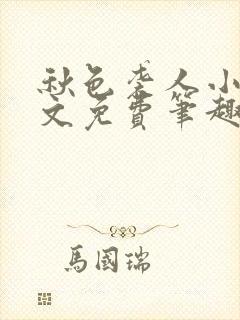 秋色袭人小
文免費筆趣
馬國瑞